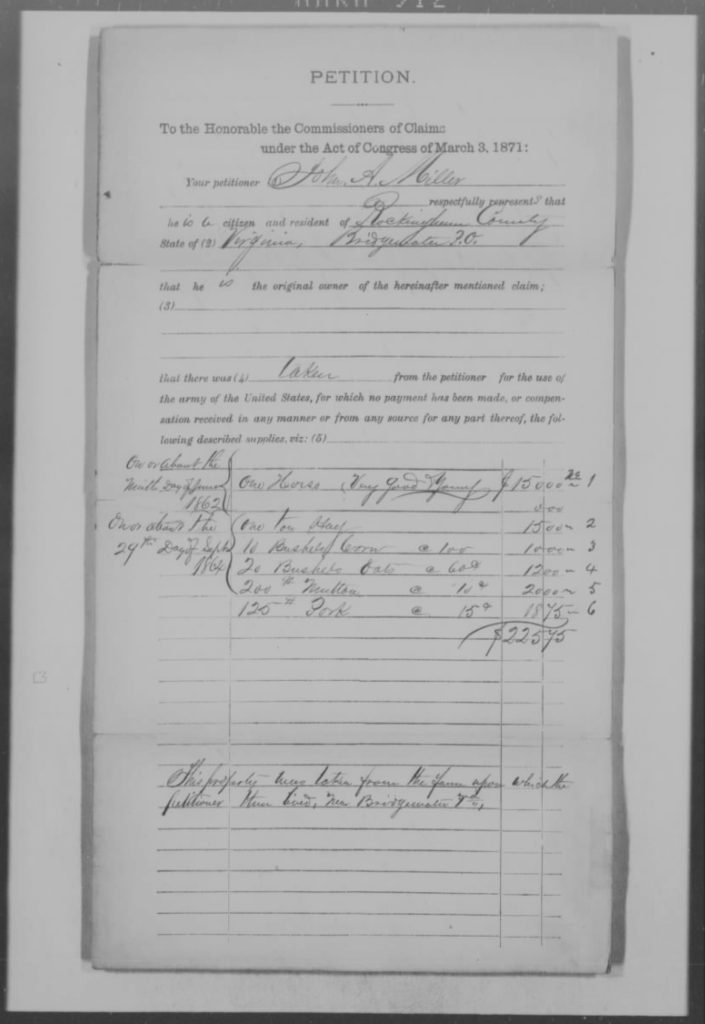 PETITION.
To the Honorable the Commissioners of Claims
under the Act of Congress of March 3, 1871:
Your petitioner John A. Miller
respectfully represents that
he is a citizen and resident of Rockingham County
State of (2) Virginia, Bridgewater P.O.
that he is the original owner of the hereinafter mentioned claim;
(3)
that there was (4) taken from the petitioner for the use of
the army of the United States, for which no payment has been made, or compen-
sation received in any manner or from any source for any part thereof, the fol-
lowing described supplies, viz: (5)
On or about the
Ninth Day of June One Horse Very good & Young $150 00 1
1862
On or about the One ton Hay 15 00 2
29th Day of Sept 10 Bushels Corn @ 100 10 00 3
1864 20 Bushels Oats @ 60 12 00 4
200 # Mutton @ 10 20 00 5
125 # Pork @ 15 18 75 6
$225 75
This property was taken from the farm upon which the
petitioner then lived, near Bridgewater